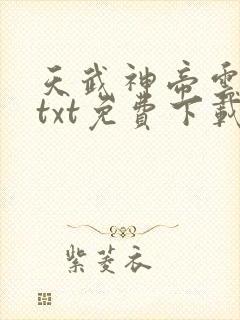 天武神帝電
txt免費下載
紫菱衣